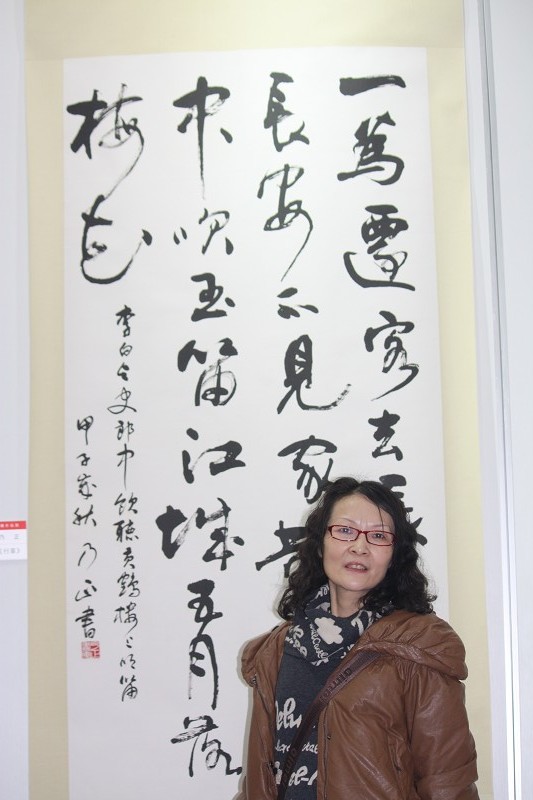 一為遷客去長
長安不見家黃
中吹玉笛江城五月落
梅花
李白与史郎中飲聽黃鶴樓上吹笛
甲子歲秋乃正書